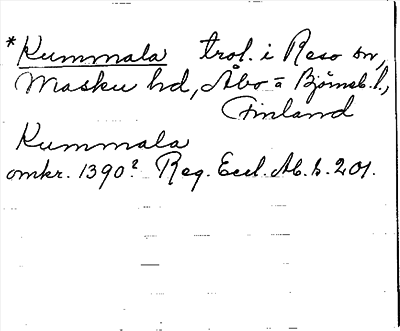 *Kummala trol. i Reso sn,
Masku hd, Åbo o Björneb. l.,
Finland
Kummala
omkr. 1390? Reg. Eccl. Ab. s. 201.